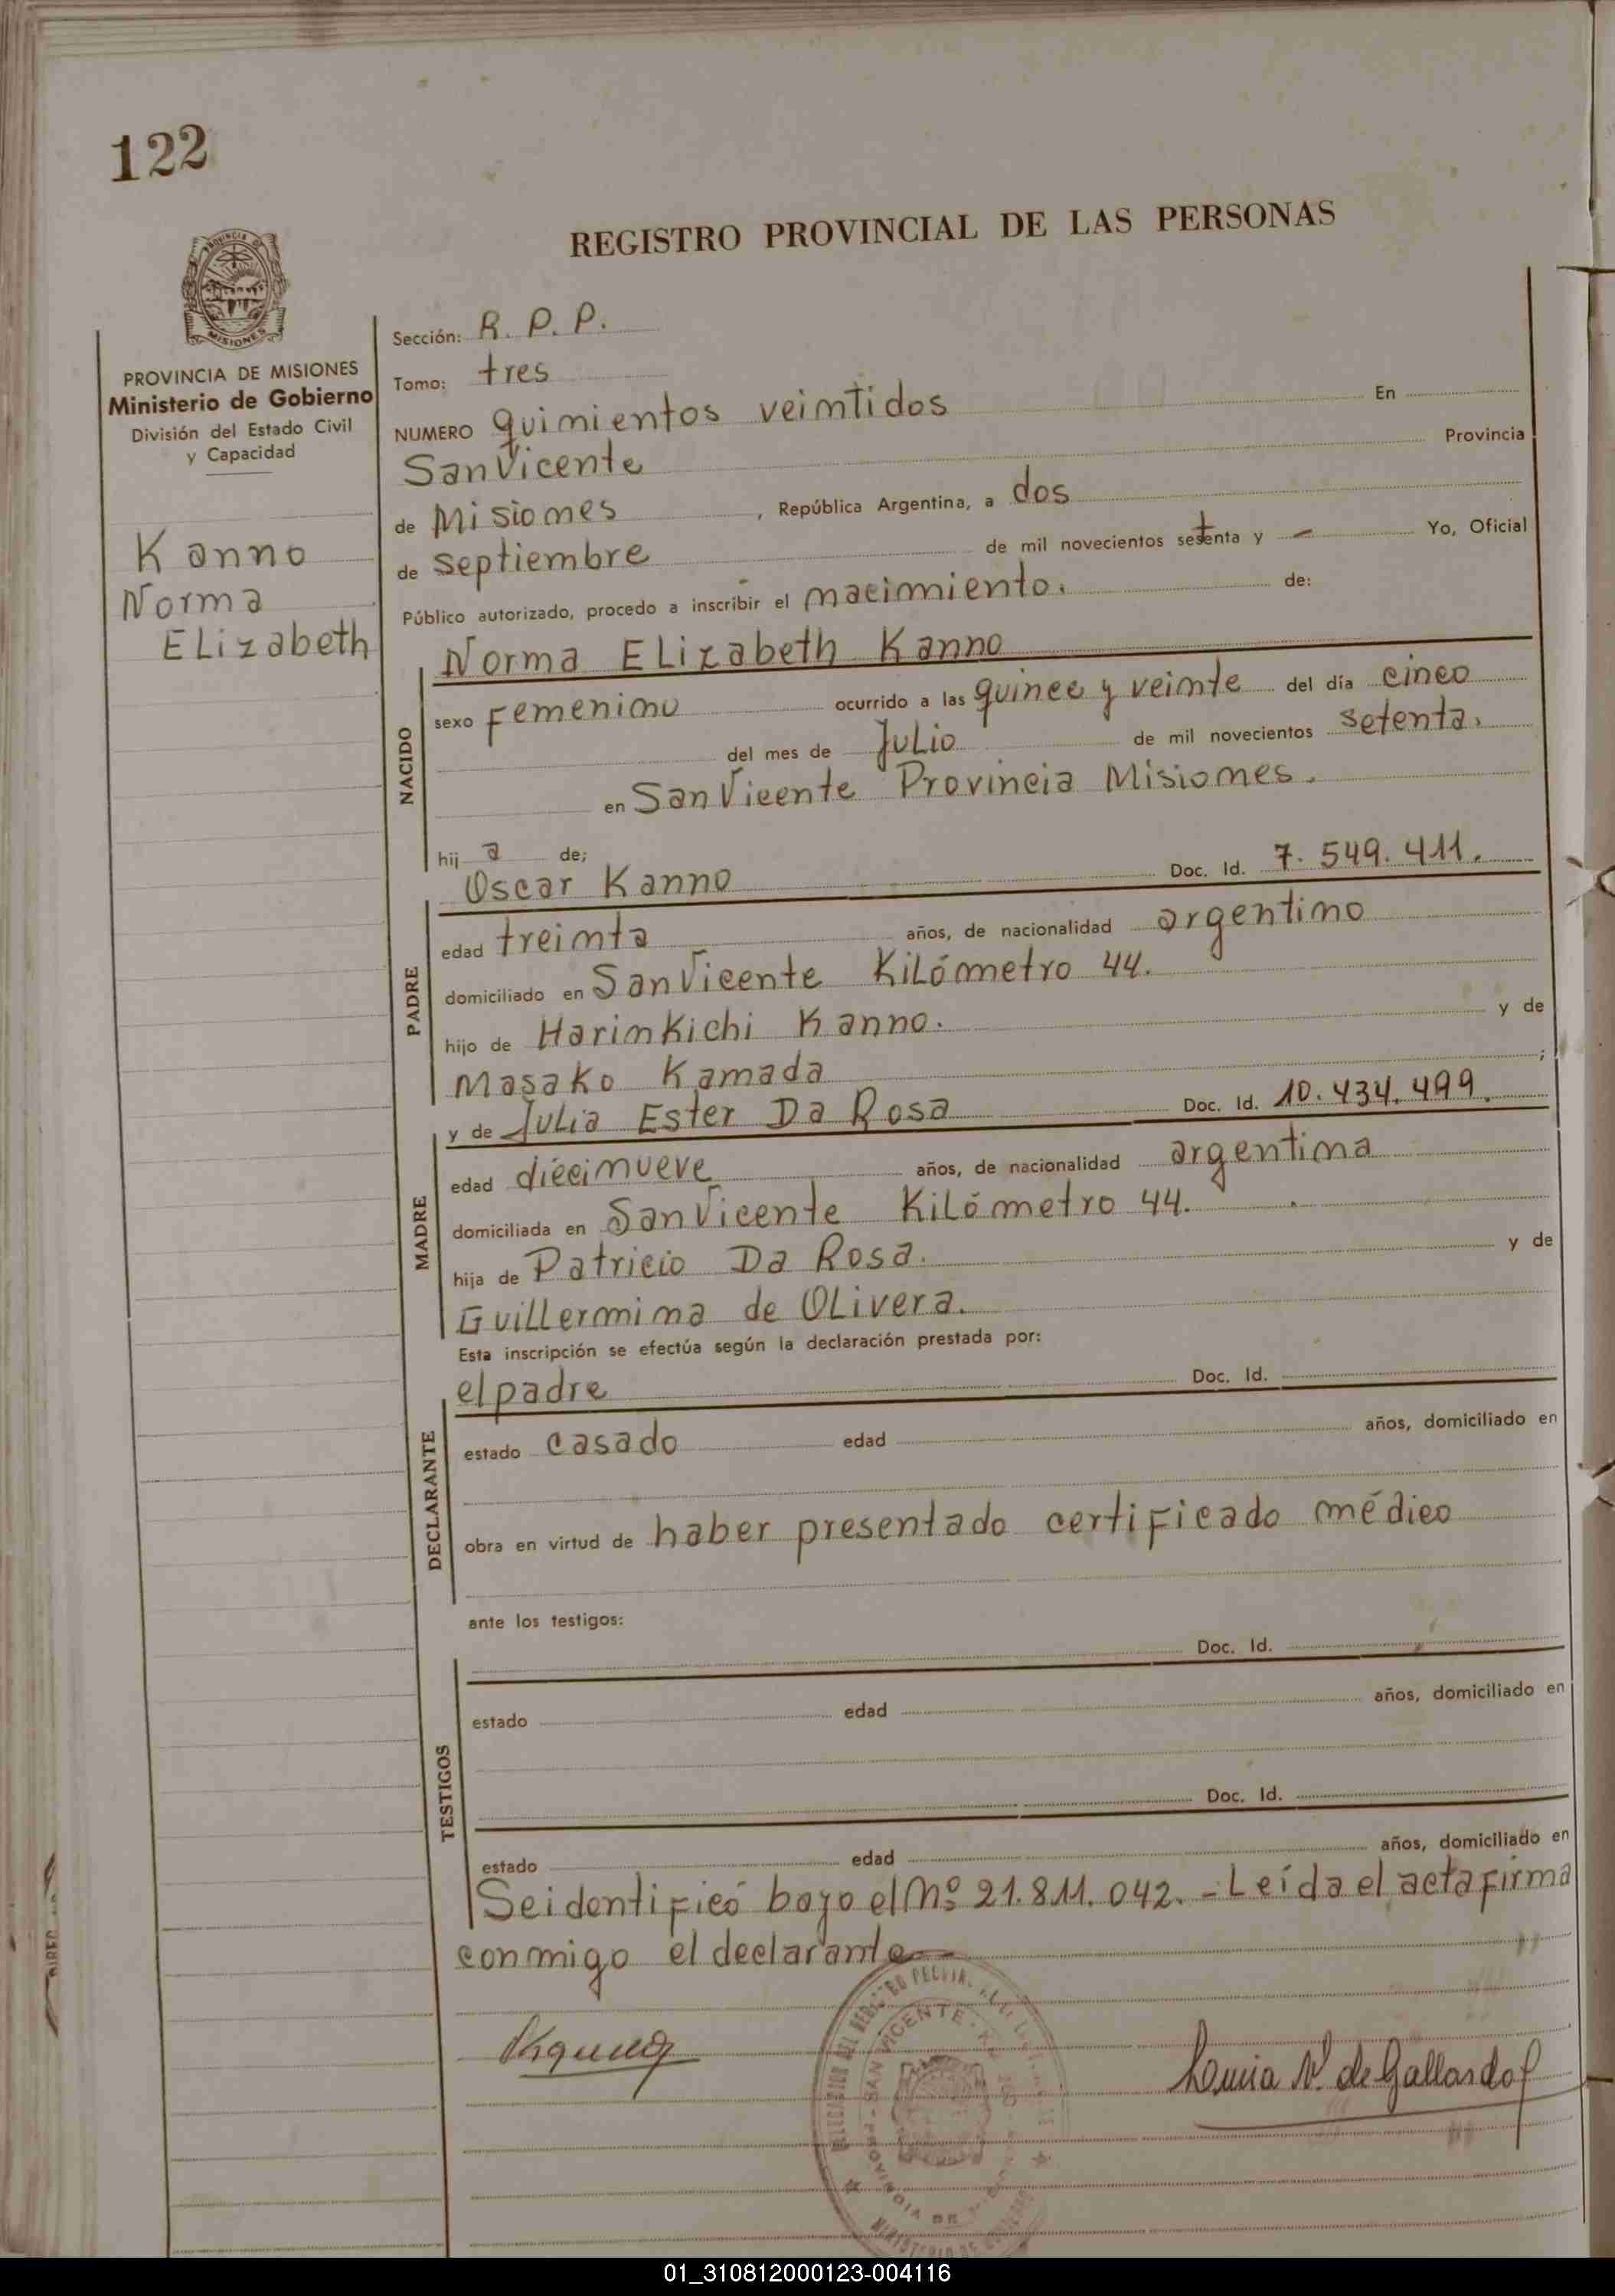 122
REGISTRO PROVINCIAL DE LAS PERSONAS
PROVINCIA DE MISIONES
Ministerio de Gobierno
División del Estado Civil
y Capacidad
Kanno
Norma
ELizabeth
Sección: R. P. P.
Tomo: tres
NUMERO quimientos veimtidos En
San Vicente Provincia
de Misiomes , República Argentina, a dos
de septiembre de mil novecientos setenta y — Yo, Oficial
Público autorizado, procedo a inscribir el macimiento. de:
Norma ELizabeth Kanno
NACIDO
sexo Femenimo ocurrido a las quince y veimte del día cinco
del mes de Julio de mil novecientos setenta.
en San Vicente Provincia Misiomes.
hij a de;
Oscar Kanno Doc. Id. 7. 549. 411.
PADRE
edad treimta años, de nacionalidad argentimo
domiciliado en San Vicente Kilómetro 44.
hijo de Harimkichi Kanno. y de
Masako Kamada ;
y de Julia Ester Da Rosa Doc. Id. 10. 434. 499.
MADRE
edad diecimueve años, de nacionalidad argentima
domiciliada en San Vicente Kilómetro 44.
hija de Patricio Da Rosa. y de
Guillermima de OLivera.
Esta inscripción se efectúa según la declaración prestada por:
el padre Doc. Id.
DECLARANTE
estado casado edad años, domiciliado en
obra en virtud de haber presentado certificado médico
ante los testigos:
Doc. Id.
TESTIGOS
estado edad años, domiciliado en
Doc. Id.
estado edad años, domiciliado en
Se identificó bajo el Nº 21.811.042. - Leída el acta firma
conmigo el declarante
de Gallardo
SAN VICENTE
01_310812000123-004116